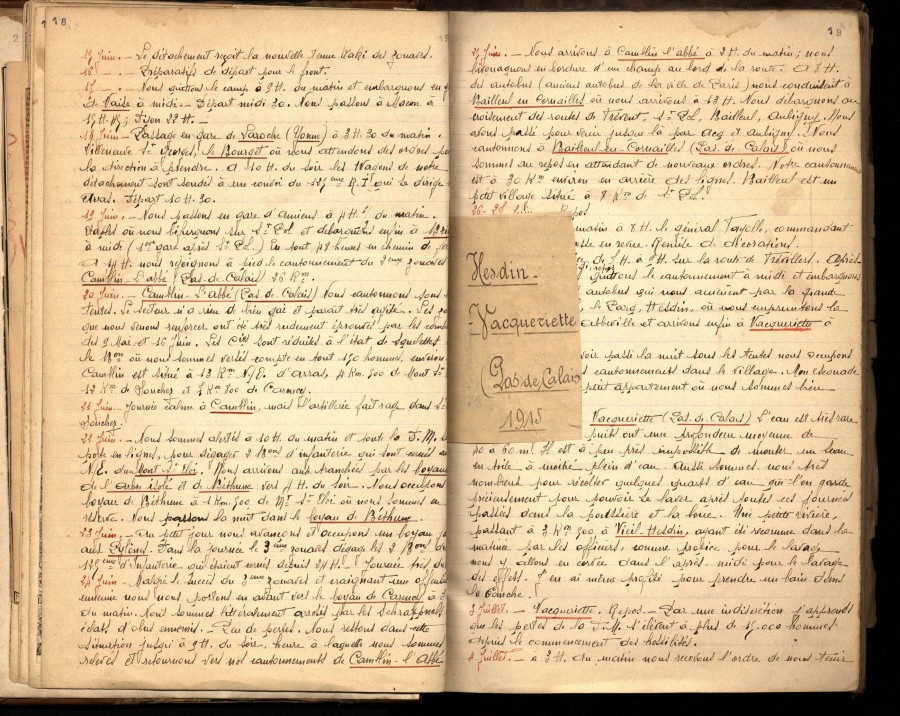 18
15 Juin. - Le détachement reçoit la nouvelle Tenue Kaki des zouaves.
16 - . - Préparatifs de départ pour le front.
17 - . - Nous quittons le camp à 9H. du matin et embarquons en
de Vaise à midi. - Départ midi 30. Nous passons à Macon à
Dijon 22 H. -
18 Juin. - Passage en gare de Laroche (Yonne) à 3H.30 du matin.
Villeneuve St Georges, le Bourget où nous attendons des ordres
la direction à prendre. A 10 H. du soir les Wagons de notre
détachement sont soudés à un convoi du R.I qui le dirige
Arras. Départ 10 H.30.
19 Juin. - Nous passons en gare d'Amiens à 4H. du matin.
Etaples où nous bifurquons sur St Pol et débarquons enfin à
à midi (1ère gare après St Pol.) En tout 48 heures en chemin de
A 14 H. nous rejoignons à pied le cantonnement du 3ème zouaves
Camblin-L'abbé (Pas de Calais) 26 Km.
20 Juin. - Camblin-L'abbé (Pas de Calais) Nous cantonnons sous
tentes. Le secteur n'a rien de bien gai et paraît très agité.
que nous venons renforcer ont été très rudement éprouvés par les
des 9 Mai et 16 Juin. Les Cies sont réduites à l'état de squelettes
le Bon où nous sommes versés compte en tout 150 hommes, environ
Camblin est situé à 13 Km N/E. d'Arras, 4 Km.500 de Mont St
12 Km de Souchez et 7 Km 500 de Carency.
21 Juin. - Journée calme à Camblin, mais l'artillerie fait rage dans
Souchez.
22 Juin. - Nous sommes alertés à 10H. du matin et toute la D.M. se
porte en lignes, pour dégager 2 Bons d'infanterie qui sont cernés au
N/E. du Mont St Eloi. Nous arrivons aux tranchées par les boyaux
de l'arbre isolé et de Béthune vers 4 H. du soir. Nous occupons
boyau de Béthune à 1 Km.500 de Mt St Eloi où nous sommes en
réserve. Nous passons la nuit dans le boyau de Béthune.
23 Juin. - Au petit jour nous avançons et occupons un boyau
aux Pylônes. Dans la journée le 3ème zouaves dégage les 2 Bons du
d'infanterie qui étaient cernés depuis 24 H. - Journée très
24 Juin. - Malgré le succès du 3ème zouaves et craignant une offensive
ennemie nous nous portons en avant vers le boyau de Carency à 3
du matin. Nous sommes littéralement arrosés par les schrapnells
éclats d'obus ennemis. - Peu de pertes. Nous restons dans cette
situation jusqu'à 9H. du soir, heure à laquelle nous sommes
relevés et retournons vers nos cantonnements de Camblin-l'Abbé
19
25 Juin. - Nous arrivons à Camblin l'abbé à 2H. du matin; nous
bivouaquons en bordure d'un champ au bord de la route. A 8H.
des autobus (anciens autobus de la ville de Paris) nous conduisent à
Bailleul en Cornailles où nous arrivons à 13 H. Nous débarquons au
croisement des routes de Frévent, St Pol, Bailleul, Aubigny. Nous
avons passé pour venir jusque là par Acq et Aubigny. Nous
cantonnons à Bailleul-en-Cornailles (Pas de Calais) où nous
sommes au repos en attendant de nouveaux ordres. Notre cantonnement
est à 30 Km environ en arrière des lignes. Bailleul est un
petit village situé à 8 Km de St Pol.
Repos
matin à 8H. le général commandant
en revue. Remise de décorations.
de 7H. à 9H. sur la route de Tincillers. Après
repos
quittons le cantonnement à midi et embarquons
autobus qui nous amènent par la grande
le Parq, Hesdin, où nous empruntons la
Abbeville et arrivons enfin à Vacqueriette à
avoir passé la nuit sous les tentes nous occupons
cantonnements dans le village. Mon escouade
petit appartement où nous sommes bien
Hesdin -
- Vacqueriette
(Pas-de-Calais)
1915
Vacqueriette (Pas.de.Calais) L'eau est très rare
puits ont une profondeur moyenne de
50 à 60 m. Il est à peu près impossible de monter un seau
en toile à moitié plein d'eau. Aussi sommes-nous très
nombreux pour récolter quelques quarts d'eau que l'on garde
précieusement pour pouvoir se laver après toutes ces journées
passées dans la poussière et la boue. Une petite rivière,
passant à 3 Km 500 à Vieil-Hesdin, ayant été reconnue dans la
matinée par les officiers, comme propice pour le lavage
nous y allons en corvée dans l'après-midi pour le lavage
des effets. J'en ai même profité pour prendre un bain dans
la Canche.
3 Juillet. - Vacqueriette. Repos. - Par une indiscrétion j'apprends
que les pertes de la D.M. s'élèvent à plus de 15.000 hommes
depuis le commencement des hostilités.
4 Juillet. - à 3H. du matin nous recevons l'ordre de nous tenir